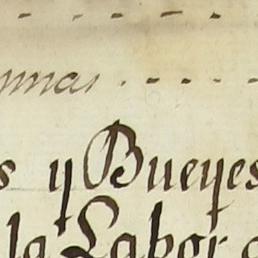 s y Bueyes
la Labor